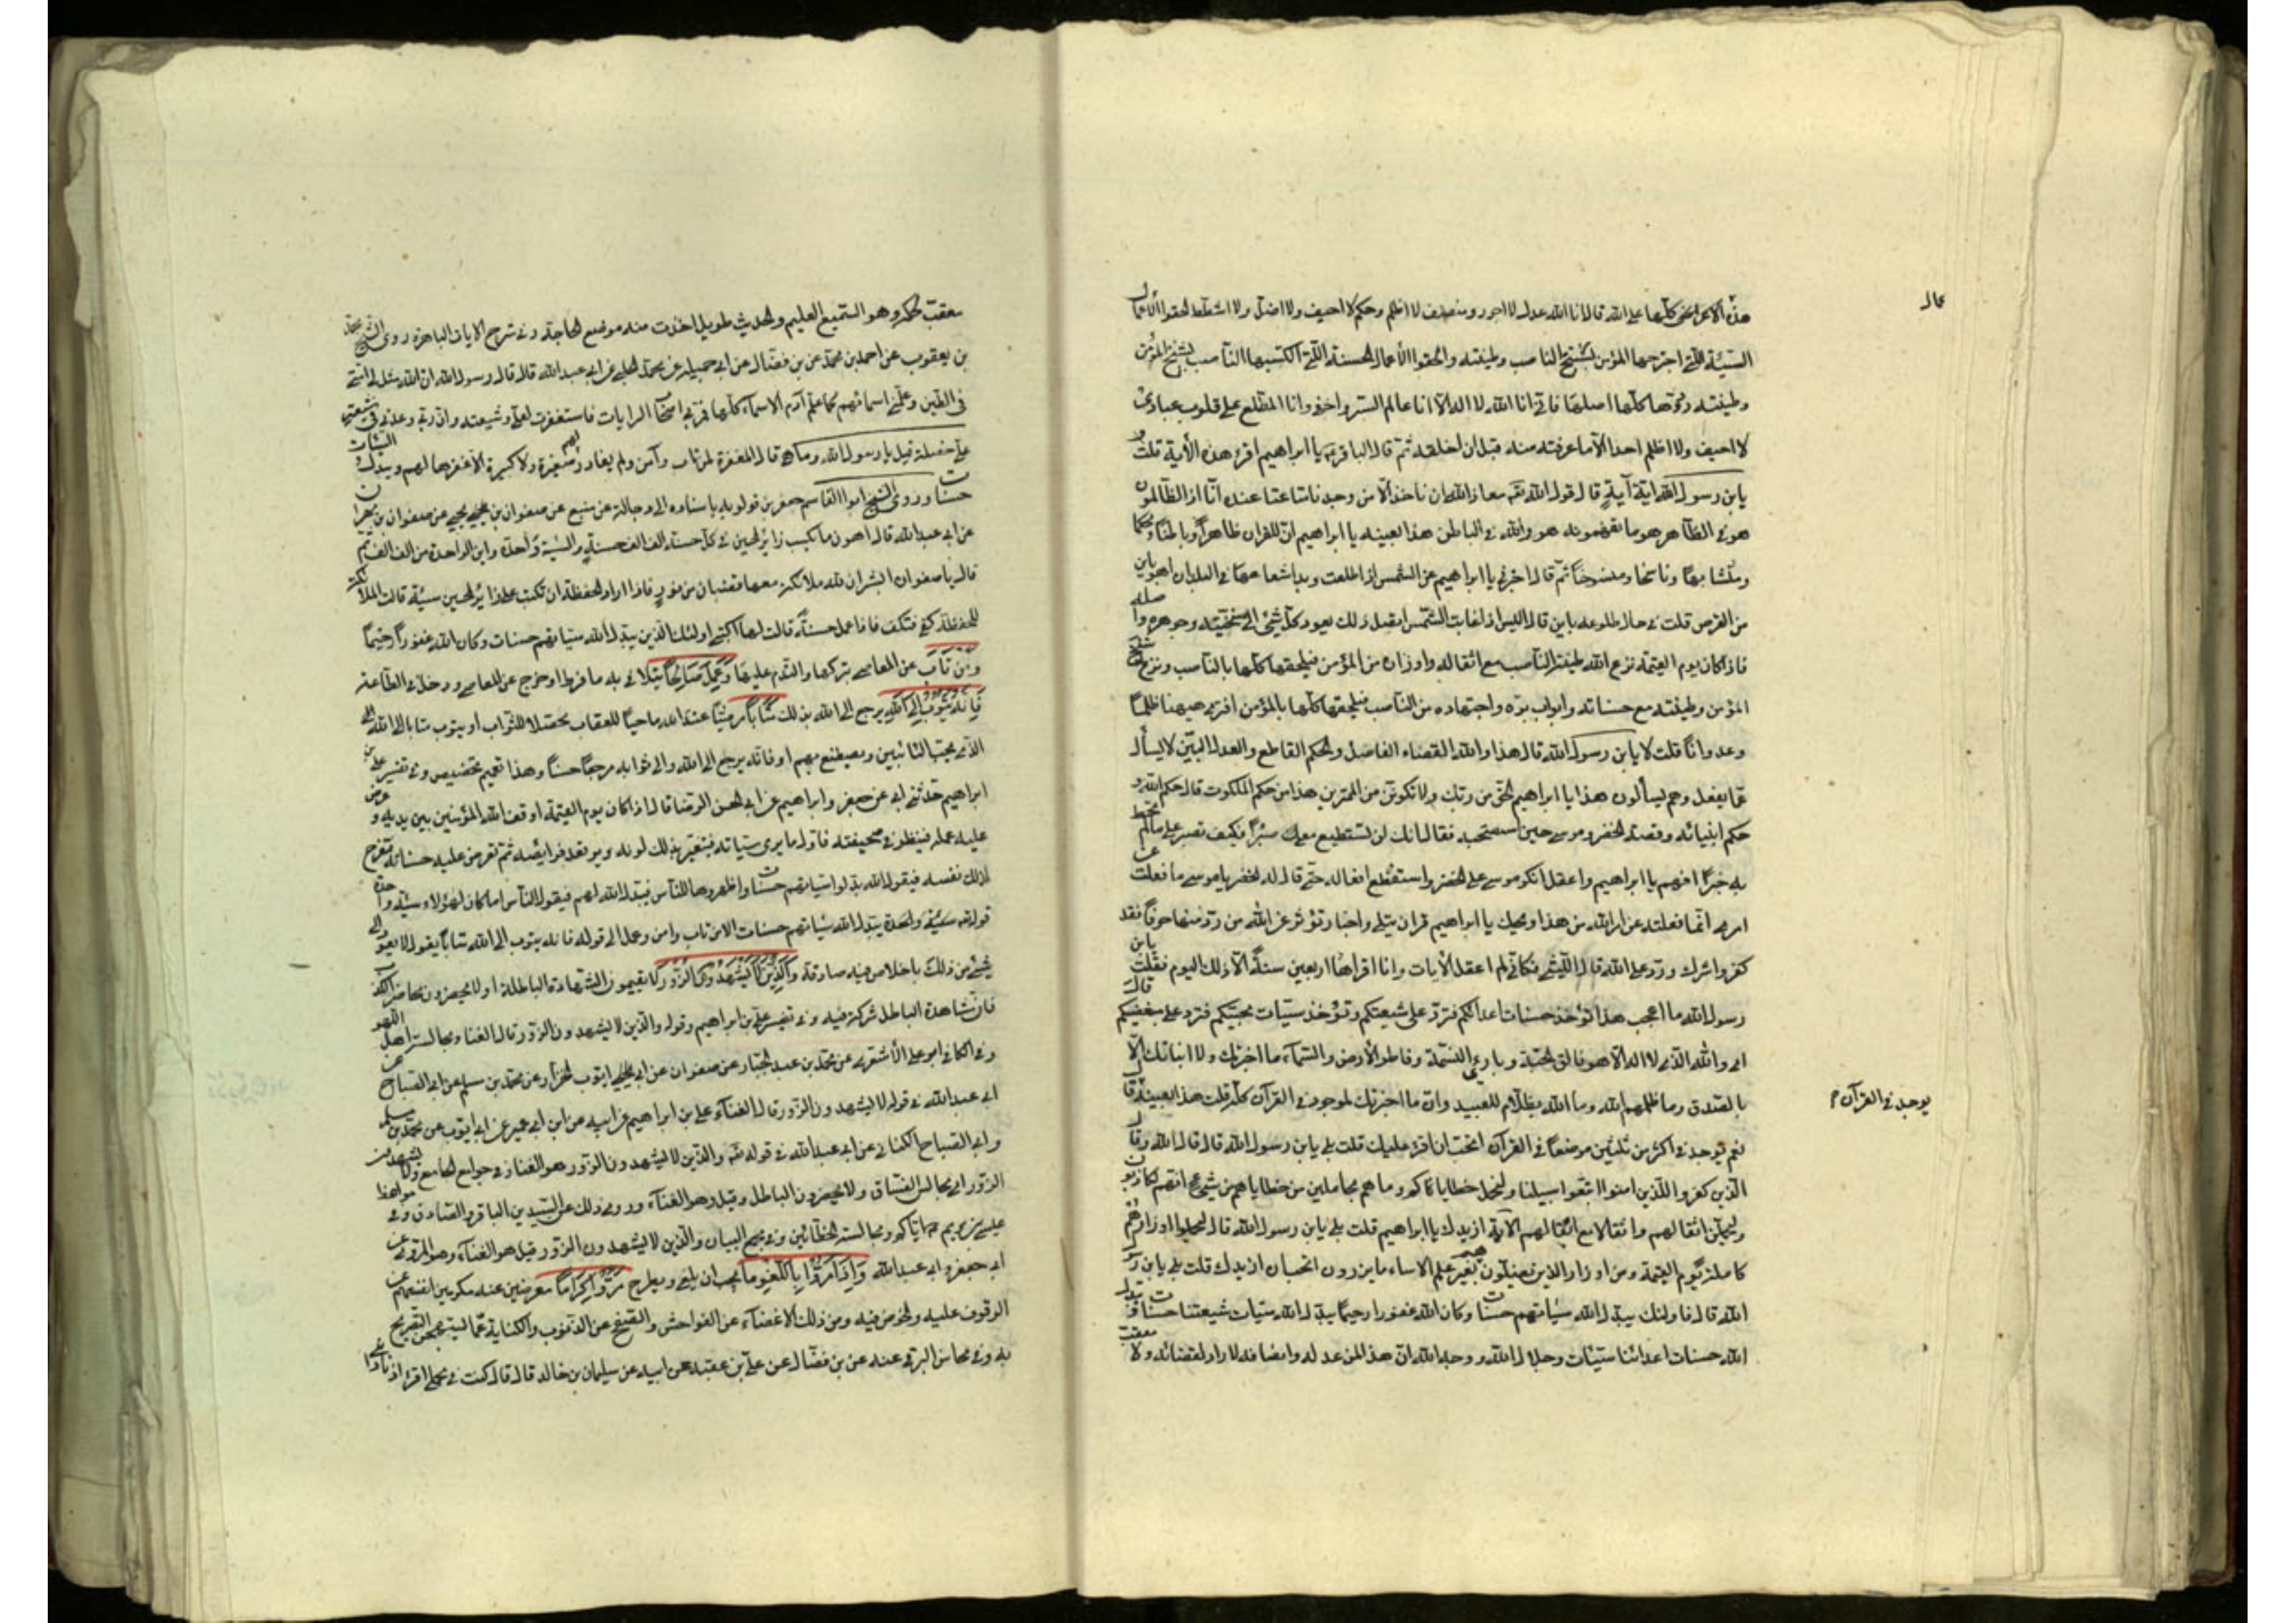 هذه الاعراض كلها على الله قال انا الله عدل لا اجور ومنصف لا اظلم وحكم لا احيف ولا اضل ولا اشطط الحقوا الاعمال
السيئة التي اجترحها المؤمن بسنخ الناصب وطينته والحقوا الأعمال الحسنة التي اكتسبها الناصب بسنخ المؤمن
وطينته ردوها كلها الى اصلها فاني انا الله لا اله الا انا عالم السر واخفى وانا المطلع على قلوب عبادى
لا احيف ولا اظلم احدا الا ما عرفته منه قبل ان اخلقه ثم قال الباقر يا ابراهيم اقرء هذه الأية قلت
يابن رسول الله اية آية قال قوله الله تعه معاذ الله ان ناخذ الا من وجدنا متاعنا عنده انا اذا لظالمون
هو فى الظاهر هو ما تفهمونه هو والله فى الباطن هذا بعينه يا ابراهيم ان للقران ظاهرا وباطنا ومحكما
ومتشابها وناسخا ومنسوخا ثم قال اخبرنى يا ابراهيم عن الشمس اذا طلعت وبدا شعاعها فى البلدان اهو باين
من القرص قلت فى حال طلوعه باين قال اليس اذا غابت الشمس يعود كل شئ الى سنخه وجوهره واصله
فاذا كان يوم القيمة نزع الله طينة الناصب مع اثقاله واوزاره من المؤمن فيلحقها كلها بالناصب ونزع سنخ
المؤمن وطينته مع حسناته وابواب بره واجتهاده من الناصب فيلحقها كلها بالمؤمن افترى هيهنا ظلما
وعدوانا قلت لا يابن رسول الله قال هذا والله القضاء الفاصل والحكم القاطع والعدل البين لا يسأل
عما يفعل وهم يسألون هذا يا ابراهيم الحق من ربك ولا تكونن من الممترين هذا من حكم الملكوت قال حكم الله و
حكم انبيائه وقصة الخضر وموسى حين استصحبه فقال انك لن تستطيع معى صبرا وكيف تصبر على ما لم تحط
به خبرا افهم يا ابراهيم واعقل انكر موسى على الخضر واستفظع افعاله حتى قال له الخضر يا موسى ما فعلت عن
امرى انما فعلته عن امر الله من هذا ويحك يا ابراهيم قران يتلى واخبار تؤثر عن الله من رد منها حرفا فقد
كفر واشرك ورد على الله قال الليثى فكانى لم اعقل الأيات وانا اقراها اربعين سنة الا ذلك اليوم فقلت يابن
رسول الله ما اعجب هذا تؤخذ حسنات اعدائكم فترد على شيعتكم وتؤخذ سيئات محبيكم فترد على مبغضيكم قال
اى والله الذى لا اله الا هو فالق الحبة وبارئ النسمة وفاطر الأرض والسماء ما اخبرتك ولا انبأتك الا
بالصدق وما ظلمهم الله وما الله بظلام للعبيد وان ما اخبرتك لموجود فى القرآن كله قلت هذا بعينه قال
نعم يوجد فى اكثر من ثلثين موضعا فى القرآن اتحب ان اقرء عليك قلت بلى يابن رسول الله قال قال الله وقال
الذين كفروا للذين امنوا اتبعوا سبيلنا ولنحمل خطاياكم وما هم بحاملين من خطاياهم من شئ انهم لكاذبون
وليحملن اثقالهم واثقالا مع اثقالهم الآية ازيدك يا ابراهيم قلت بلى يابن رسول الله قال ليحملوا اوزارهم
كاملة يوم القيمة ومن اوزار الذين يضلونهم بغير علم الا ساء ما يزرون اتحب ان ازيدك قلت بلى يابن رسول
الله قال فاولئك يبدل الله سيئاتهم حسنات وكان الله غفورا رحيما يبدل الله سيئات شيعتنا حسنات ويبدل
الله حسنات اعدائنا سيئات وجلال الله ووجه الله ان هذا لمن عدله وانصافه لا راد لقضائه ولا معقب
عال
يوجد فى القرآن م
معقب لحكمه وهو السميع العليم والحديث طويل اخذت منه موضع الحاجة وفى شرح الايات الباهرة روى الشيخ محمد
بن يعقوب عن احمد بن محمد عن بن فضال عن ابى جميلة عن محمد الحلبى عن ابى عبد الله قال قال رسول الله ان الله مثل لى امتى
فى الطين وعلمنى اسمائهم كما علم آدم الاسماء كلها فمر بى اصحاب الرايات فاستغفرت لعلى وشيعته وان ربى وعدنى فى شيعة
على خصلة قيل يا رسول الله وما هى قال المغفرة لمن تاب وآمن ولم يغادر لهم صغيرة ولا كبيرة الا غفرها لهم ويبدل السيئات
حسنات وروى الشيخ ابوا القاسم جعفر بن قولويه باسناده الى رجاله عن منيع عن صفوان بن يحيى عن صفوان بن مهران
عن ابى عبد الله قال اهون ما يكسب زائر الحسين فى كل حسنة الف الف حسنة والسيئة واحدة واين الواحدة من الف الف ثم
قال يا صفوان ابشر ان لله ملائكة معها قضبان من نور فاذا اراد الحفظة ان تكتب على زائر الحسين سيئة قالت الملائكة
للحفظة كفى فتكف فاذا عمل حسنة قالت لها اكتبى اولئك الذين يبدل الله سيئاتهم حسنات وكان الله غفورا رحيما
ومن تاب عن المعاصى بتركها والندم عليها وعمل صالحا يتلافى به ما فرط او خرج عن المعاصى ودخل فى الطاعة
فانه يتوب الى الله يرجع الى الله بذلك متابا مرضيا عند الله ماحيا للعقاب محصلا للثواب او يتوب متابا الى الله
الذى يحب التائبين ويصطنع بهم او فانه يرجع الى الله والى ثوابه مرجعا حسنا وهذا تعميم بعد تخصيص وفى تفسير على بن
ابراهيم حدثنى ابى عن جعفر وابراهيم عن ابى الحسن الرضا قال اذا كان يوم القيمة اوقف الله المؤمنين بين يديه وعرض
عليه عمله فينظر فى صحيفته فاول ما يرى سيئاته فيتغير بذلك لونه ويرتعد فرايصه ثم تعرض عليه حسناته فتفرح
لذلك نفسه فيقول الله بدلوا سيئاتهم حسنات واظهروها للناس فيبدل الله لهم فيقول الناس اما كان لهؤلاء سيئة واحدة
قوله يبدل الله سيئاتهم حسنات الا من تاب وامن وعمل الى قوله فانه يتوب الى الله متابا يقول لا يعود الى
شئ من ذلك باخلاص ونية صادقة والذين لا يشهدون الزور لا يقيمون الشهادة الباطلة او لا يحضرون محاضر الكذب
فان مشاهدة الباطل شركة فيه وفى تفسير على بن ابراهيم وقوله والذين لا يشهدون الزور قال الغنا ومجالس اهل اللهو
وفى الكافى ابو على الأشعرى عن محمد بن عبد الجبار عن صفوان عن ابى ايوب الخزاز عن محمد بن مسلم عن ابى الصباح عن
ابى عبد الله فى قوله لا يشهدون الزور قال الغناء على بن ابراهيم عن ابيه عن ابن ابى عمير عن ابى ايوب عن محمد بن مسلم
وابى الصباح الكنانى عن ابى عبد الله فى قوله تعه والذين لا يشهدون الزور هو الغنا وفى جوامع الجامع ولا يشهدون
الزور اى مجالس الفساق ولا يحضرون الباطل وقيل وهو الغناء وروى ذلك عن السيدين الباقر والصادق وفى مواعظ
عيسى بن مريم اياكم ومجالسة الخطائين وفى مجمع البيان والذين لا يشهدون الزور قيل هو الغناء وهو المروى عن
ابى جعفر وابى عبد الله واذا مروا باللغو ما يجب ان يلغى ويطرح مروا كراما معرضين عنه مكرمين انفسهم عن
الوقوف عليه والخوض فيه ومن ذلك الاغضاء عن الفواحش والصفح عن الذنوب والكناية عما يستهجن التصريح
به وفى محاسن البرقى عنه عن بن فضال عن على بن عقبة عن ابيه عن سليمان بن خالد قال كنت فى محمل اقرء اذ نادانى